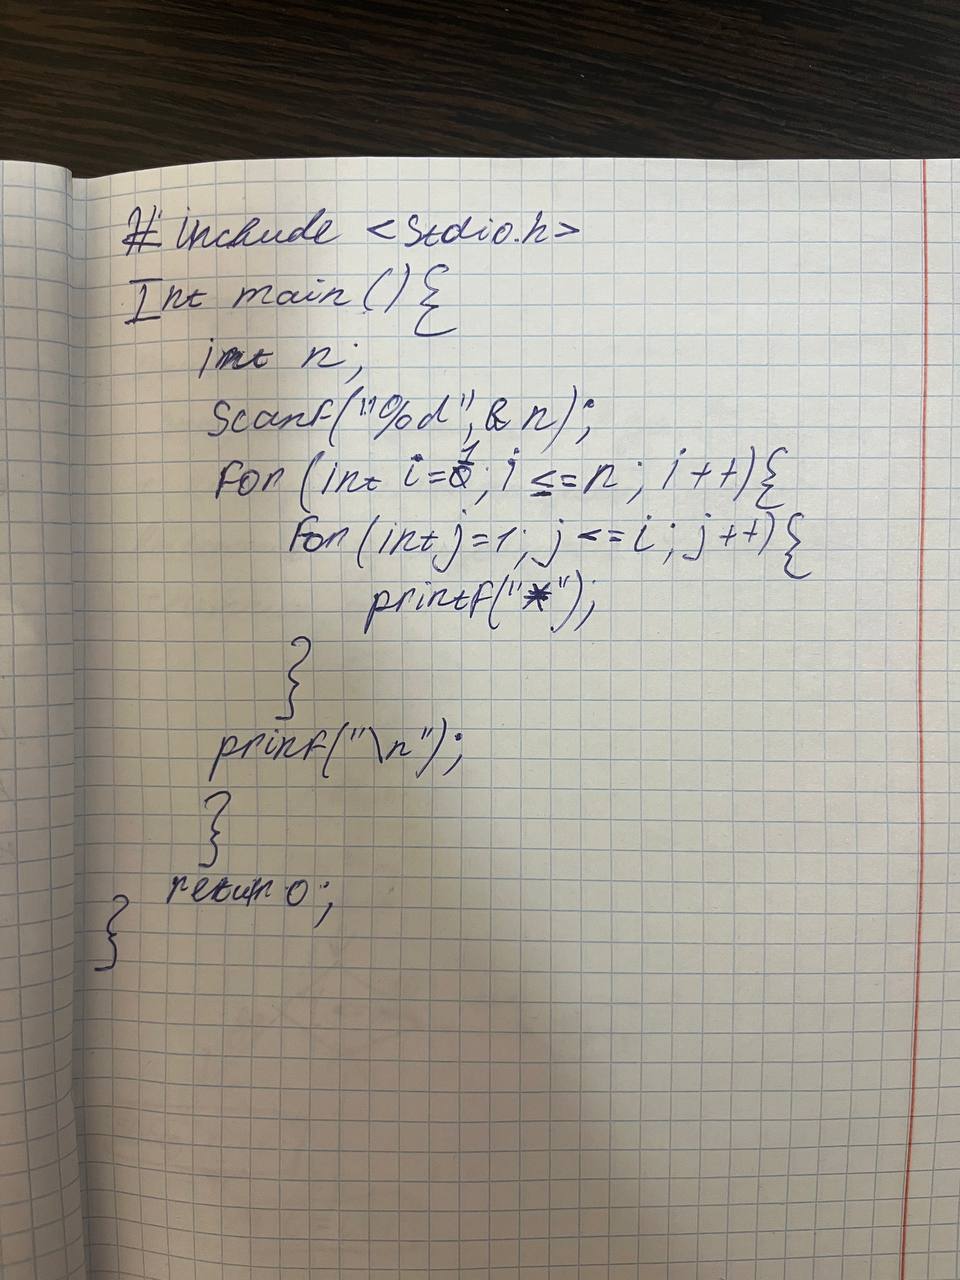 #include <stdio.h>
Int main(){
int n;
scanf("%d",& n);
for (int i=1; i <=n; i++){
for (int j=1; j <=i; j++){
printf("*");
}
prinf("\n");
}
return 0;
}